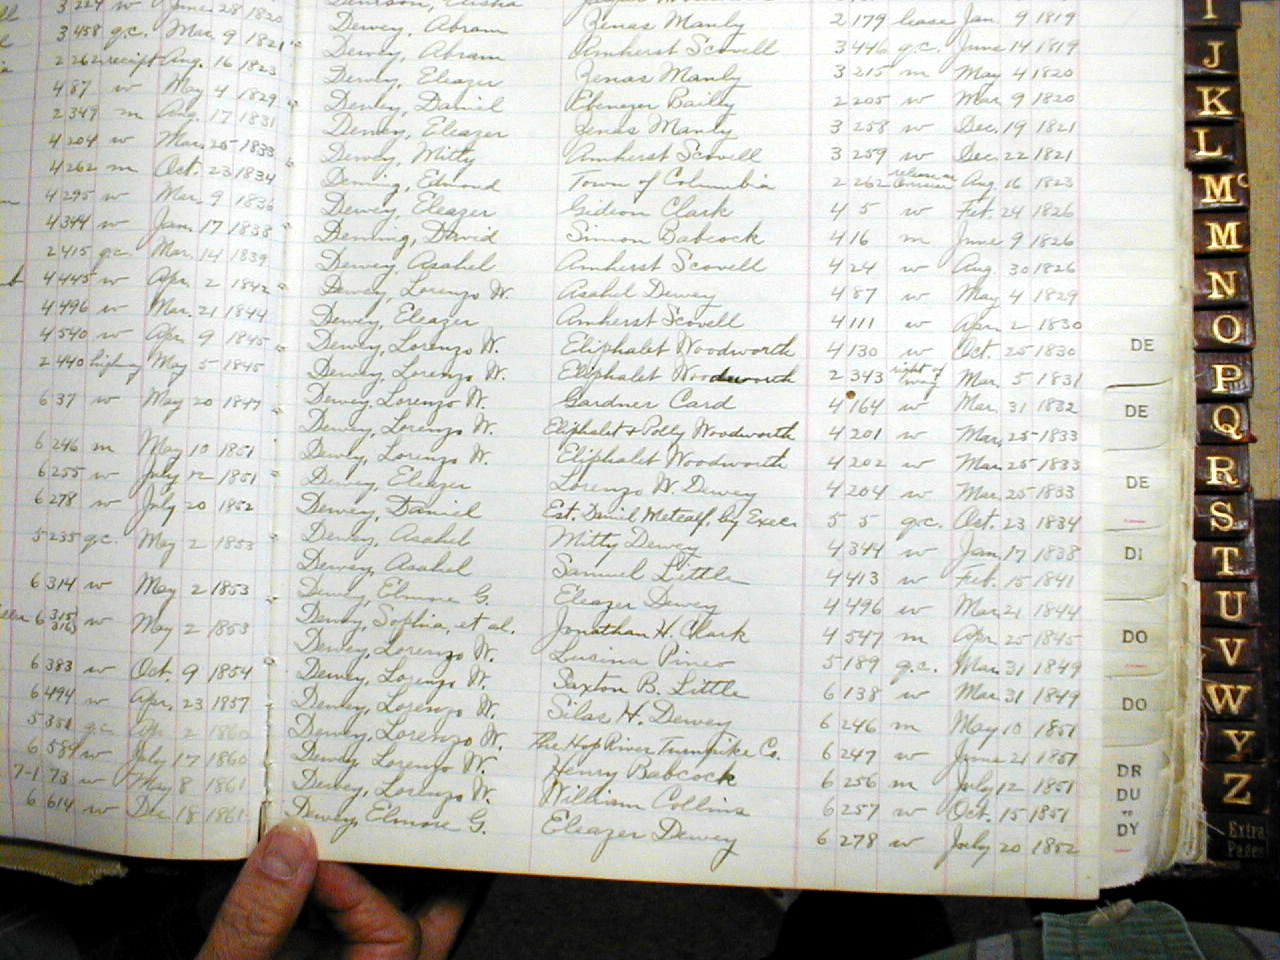 3 224 w June 28 1820
3 458 g.c. Mar. 9 1821
2 262 receipt Aug. 16 1823
4 87 w May 4 1829
2 347 m Aug. 17 1831
4 204 w Mar. 25 1833
4 262 m Oct. 23 1834
4 295 w Mar. 9 1836
4 344 w Jan. 17 1838
2 415 g.c. Mar. 14 1839
4 445 w Apr. 2 1842
4 496 w Mar. 21 1844
4 540 w Apr. 9 1845
2 440 highway May 5 1845
6 37 w May 20 1847
6 246 m May 10 1851
6 255 w July 12 1851
6 278 w July 20 1852
5 235 g.c. May 2 1853
6 314 w May 2 1853
6 315 316 w May 2 1853
6 383 w Oct. 9 1854
6 494 w Apr. 23 1857
5 351 g.c. Apr. 2 1860
6 584 w July 17 1860
7-1 73 w May 8 1861
6 614 w Dec 18 1861
Denison, Elisha
Dewey, Abram Zenas Manly 2 179 lease Jan. 9 1819
Dewey, Abram Amherst Scovell 3 446 g.c. June 14 1819
Dewey, Eleazer Zenas Manly 3 215 m May 4 1820
Dewey, Daniel Ebenezer Bailly 2 205 w Mar. 9 1820
Dewey, Eleazer Zenas Manly 3 258 w Dec. 19 1821
Dewey, Mitty Amherst Scovell 3 259 w Dec. 22 1821
Deming, Edmond Town of Columbia 2 262 Aug. 16 1823
Dewey, Eleazer Gideon Clark 4 5 w Feb. 24 1826
Deming, David Simon Babcock 4 16 m June 9 1826
Dewey, Asahel Amherst Scovell 4 24 w Aug. 30 1826
Dewey, Lorenzo W. Asahel Dewey 4 87 w May 4 1829
Dewey, Eleazer Amherst Scovell 4 111 w Apr. 2 1830
Dewey, Lorenzo W. Eliphalet Woodworth 4 130 w Oct. 25 1830
Dewey, Lorenzo W. Eliphalet Woodworth 2 343 right of way Mar. 5 1831
Dewey, Lorenzo W. Gardner Card 4 164 w Mar. 31 1832
Dewey, Lorenzo W. Eliphalet & Polly Woodworth 4 201 w Mar. 25 1833
Dewey, Lorenzo W. Eliphalet Woodworth 4 202 w Mar. 25 1833
Dewey, Eleazer Lorenzo W. Dewey 4 204 w Mar. 25 1833
Dewey, Daniel Est. Daniel Metcalf, by Exec. 5 5 g.c. Oct. 23 1834
Dewey, Asahel Mitty Dewey 4 344 w Jan. 17 1838
Dewey, Asahel Samuel Little 4 413 w Feb. 15 1841
Dewey, Elmore G. Eleazer Dewey 4 496 w Mar. 21 1844
Dewey, Sophia, et al. Jonathan H. Clark 4 547 m Apr. 25 1845
Dewey, Lorenzo W. Lucina Pineo 5 189 g.c. Mar. 31 1849
Dewey, Lorenzo W. Saxton B. Little 6 138 w Mar. 31 1849
Dewey, Lorenzo W. Silas H. Dewey 6 246 m May 10 1851
Dewey, Lorenzo W. The Hop River Turnpike Co. 6 247 w June 21 1851
Dewey Lorenzo W. Henry Babcock 6 256 m July 12 1851
Dewey, Lorenzo W. William Collins 6 257 w Oct. 15 1851
Dewey, Elmore G. Eleazer Dewey 6 278 w July 20 1852
DE
DE
DE
DI
DO
DO
DR
DU
TO
DY
I
J
K
L
Mc
M
N
O
P
Q
R
S
T
U
V
W
Y
Z
Extra
Pages